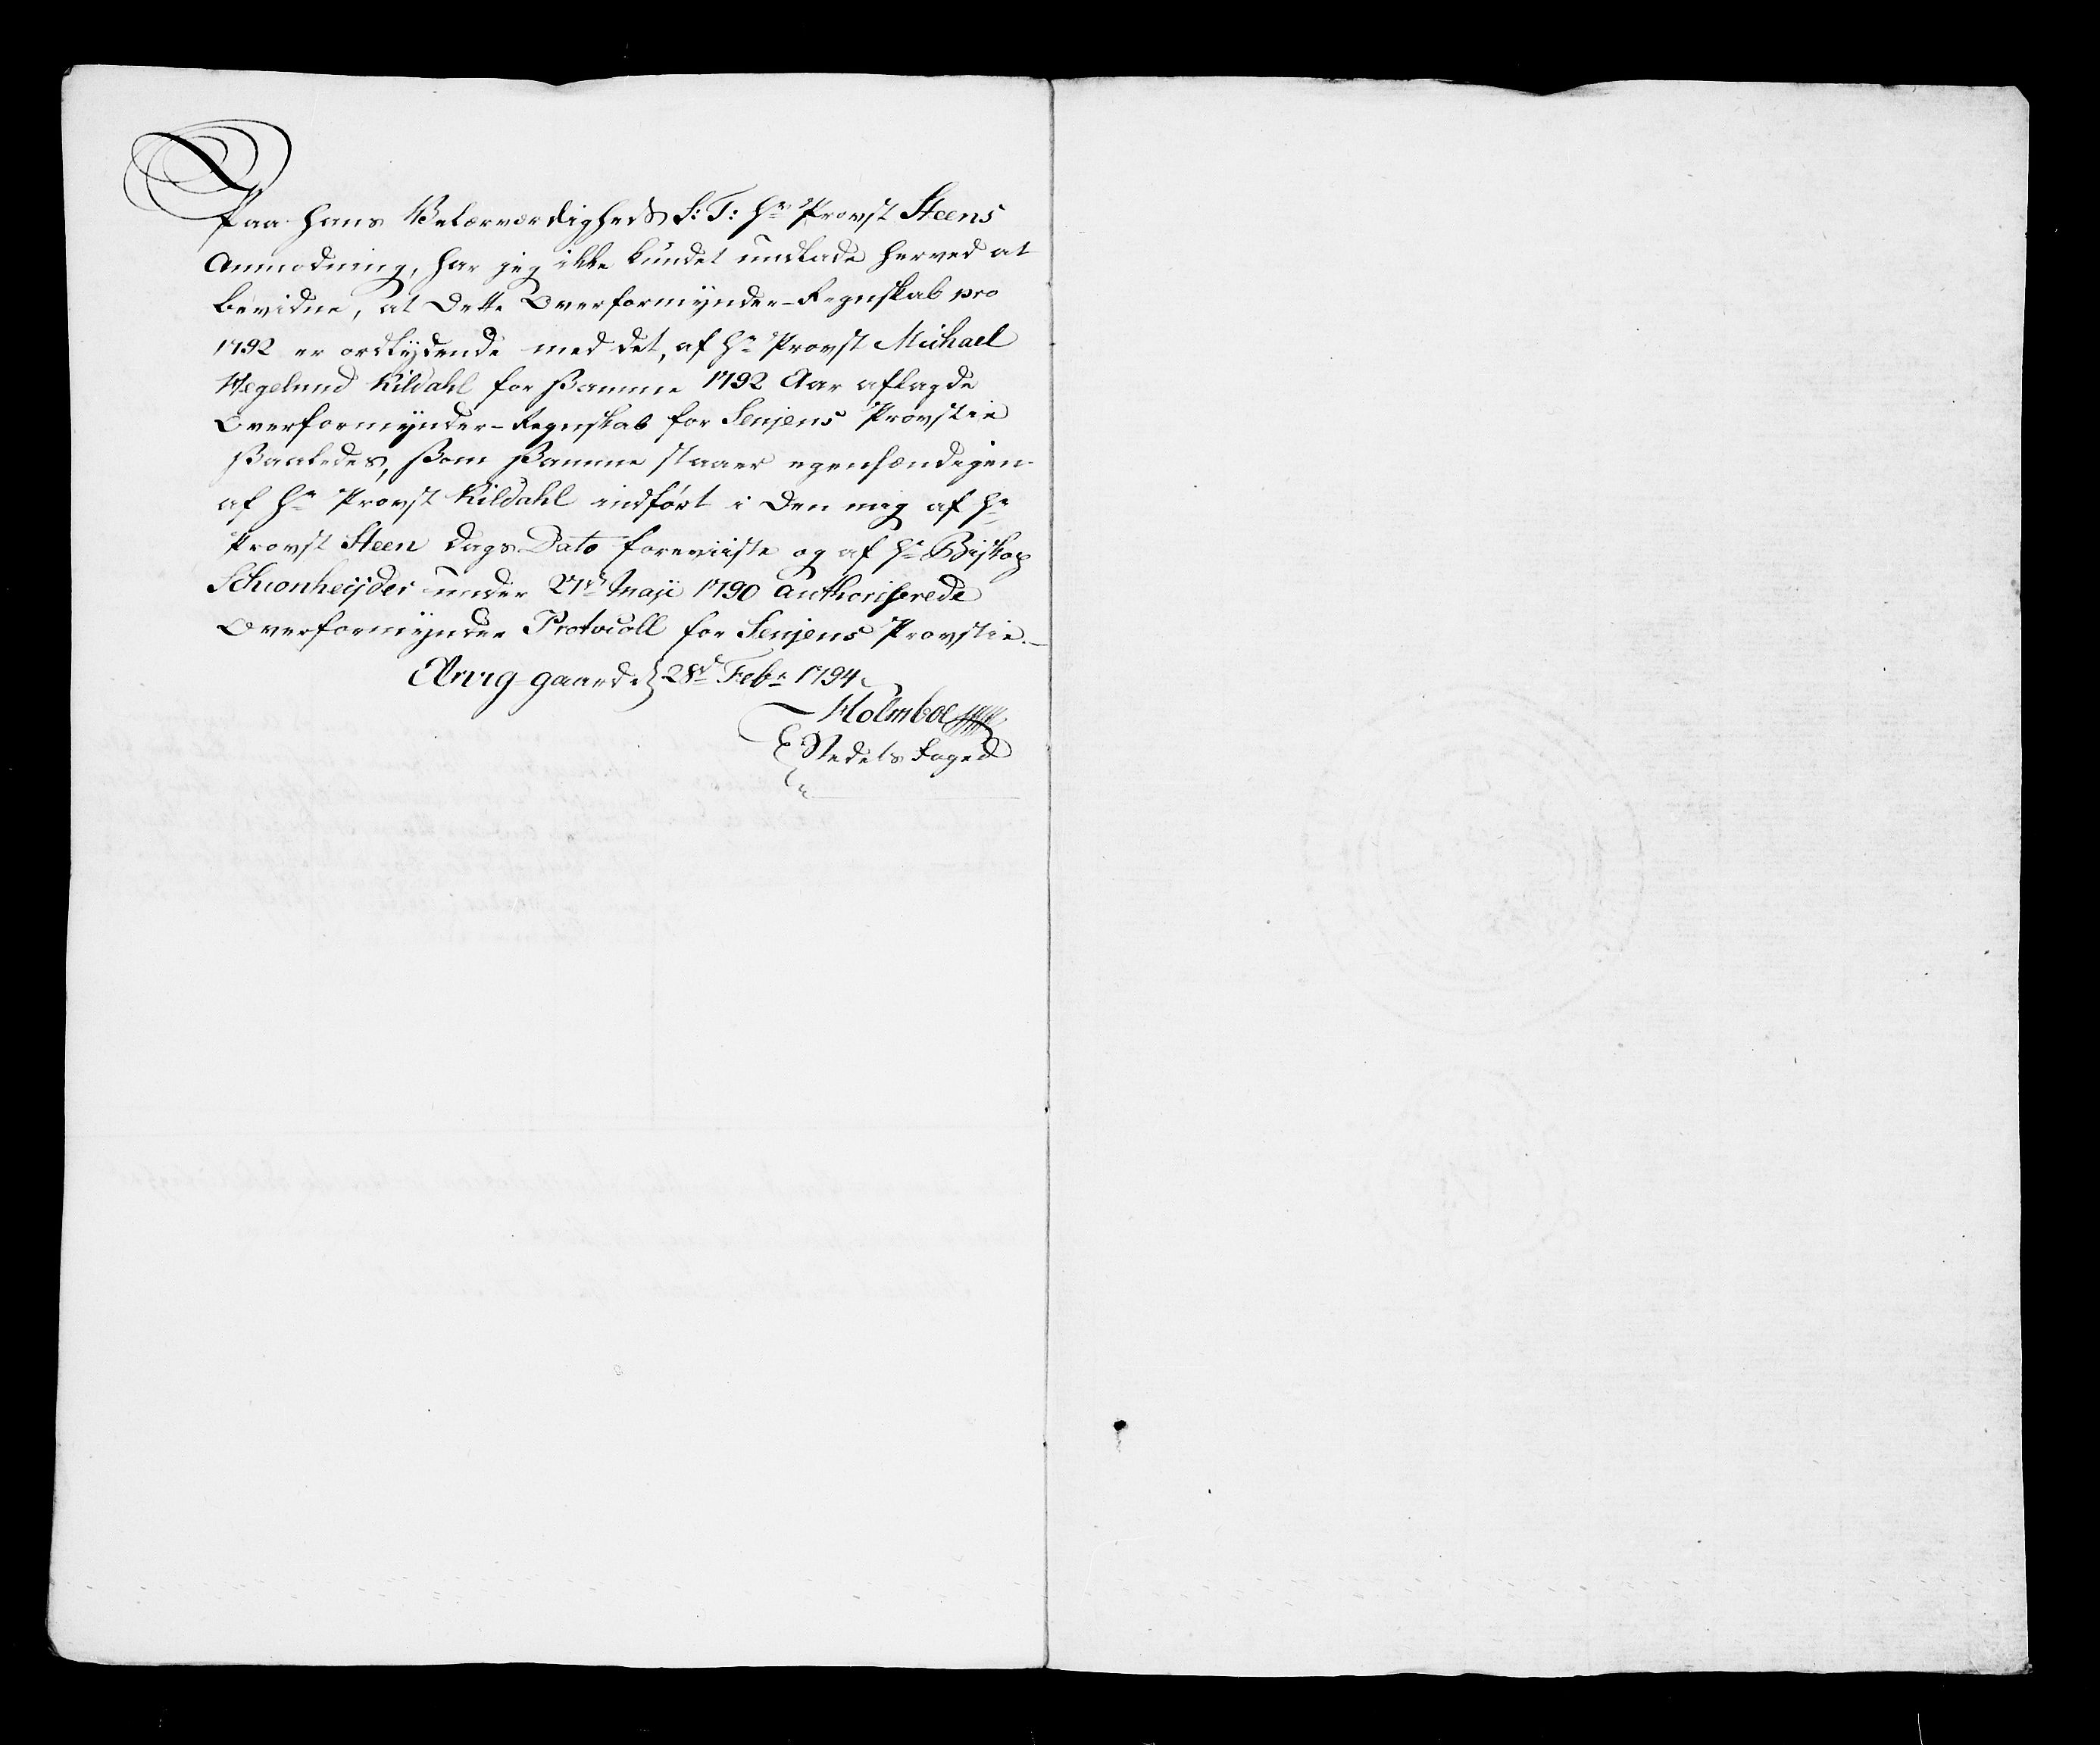 Paa Hans Velærværdigheds S: T: Hr Provst Steens
Anmodning, har jeg ikke kundet undlade herved at
bevidne, at dette Overformÿnder-Regnskab pro
1792 er ordlÿdende med det, af Hr Provst Michael
Wegelund Kildahl for samme 1792 Aar aflagde
Overformÿnder-Regnskab for Senjens Provstie
saaledes, som samme staaer egenhændigen
af Hr Provst Kildahl indført i den mig af Hr
Provst Steen Dags Dato foreviiste og af Hr Biskop
Schionheÿder under 27de Maji 1790 authoriserede
Overformÿnder Protocoll for Senjens Provstie.
gaard 28de Febr 1794
Holmboe
Stedets Foged